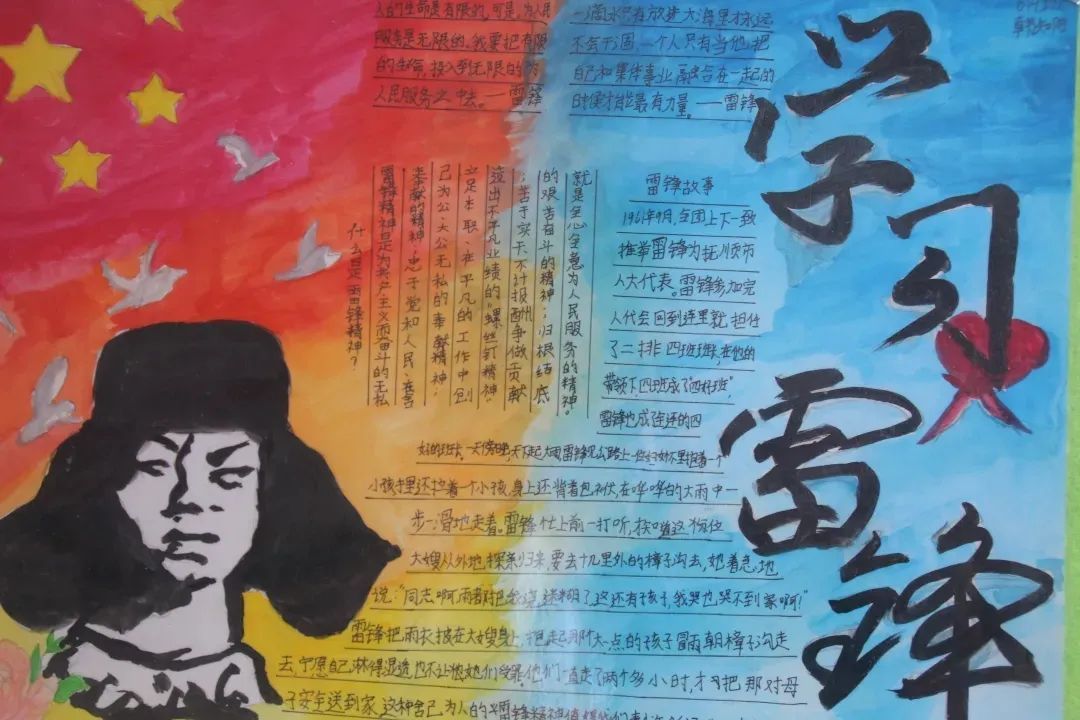 人的生命是有限的,可是,为人民
服务是无限的,我要把有限
的生命,投入到无限的为
人民服务之中去。——雷锋
一滴水只有放进大海里才永远
不会干涸,一个人只有当他把
自己和集体事业融合在一起的
时候才能最有力量。——雷锋
学习
雷锋
什么是雷锋精神?
雷锋精神是为共产主义而奋斗的无私
奉献的精神;忠于党和人民、舍
己为公、大公无私的奉献精神;
立足本职、在平凡的工作中创
造出不平凡业绩的"螺丝钉精神"
;苦于实干、不计报酬、争做贡献
的艰苦奋斗的精神;归根结底
就是全心全意为人民服务的精神。
雷锋故事
1961年9月,全团上下一致
推举雷锋为抚顺市
人大代表。雷锋参加完
人代会回到连里就担任
了二排四班班长,在他的
带领下,四班成了"四好班",
雷锋也成了全连的四
好的班长。一天傍晚,天下起大雨雷锋见公路上一位妇女怀里抱着一个
小孩手里还拉着一个小孩,身上还背着包袱,在哗哗的大雨中一
步一滑地走着。雷锋忙上前一打听,才知道这位
大嫂从外地探亲归来,要去十几里外的樟子沟去,她着急地
说:"同志啊,雨都把我浇迷糊了,这还有孩子,我哭也哭不到家啊!"
雷锋把雨衣披在大嫂身上,抱起那个大一点的孩子冒雨朝樟子沟走
去,宁愿自己淋得湿透也不让他她们受罪。他们一直走了两个多小时,才把那对母
子安全送到家,这种舍己为人的雷锋精神值得我们